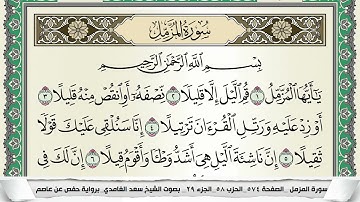 سُورَةُ المُزَّمِّلِ
بِسْمِ اللَّهِ الرَّحْمَٰنِ الرَّحِيمِ
يَا أَيُّهَا الْمُزَّمِّلُ ١ قُمِ اللَّيْلَ إِلَّا قَلِيلًا ٢ نِّصْفَهُ أَوِ انقُصْ مِنْهُ قَلِيلًا ٣
أَوْ زِدْ عَلَيْهِ وَرَتِّلِ الْقُرْآنَ تَرْتِيلًا ٤ إِنَّا سَنُلْقِي عَلَيْكَ قَوْلًا
ثَقِيلًا ٥ إِنَّ نَاشِئَةَ اللَّيْلِ هِيَ أَشَدُّ وَطْئًا وَأَقْوَمُ قِيلًا ٦ إِنَّ لَكَ فِي
سورة المزمل الصفحة ٥٧٤ الحزب ٥٨ الجزء ٢٩ بصوت الشيخ سعد الغامدي برواية حفص عن عاصم